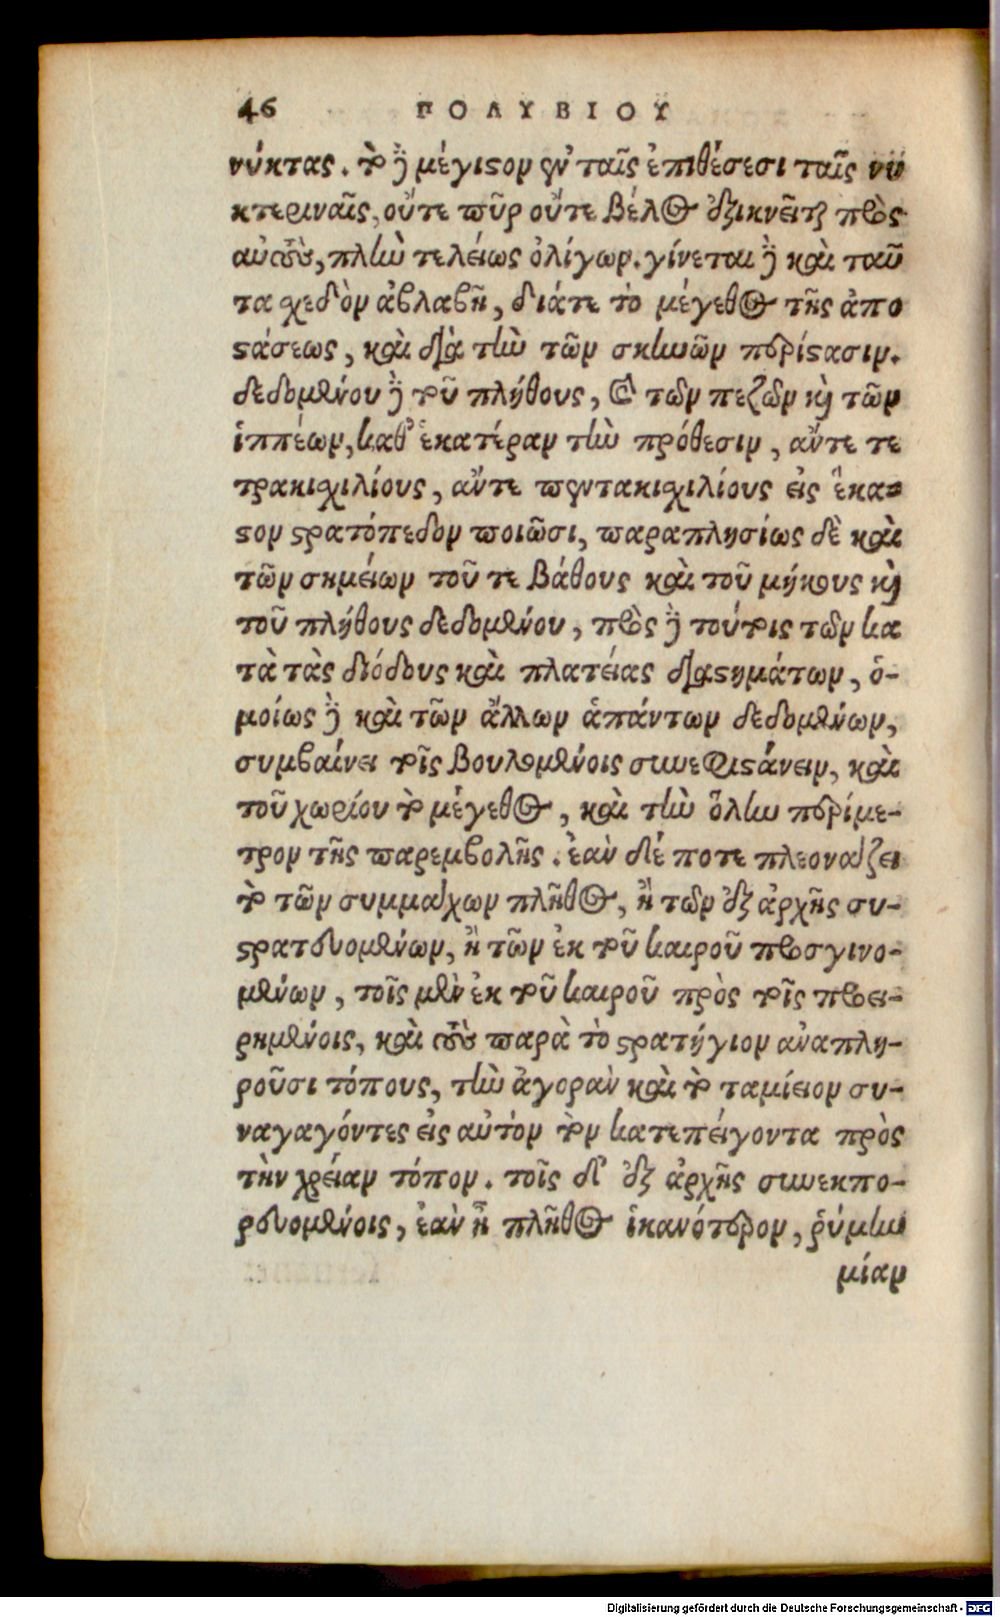 46 ΠΟΛΥΒΙΟΥ
νύκτας. τὸ δὲ μέγιστον ἐν ταῖς ἐπιθέσεσι ταῖς νυ
κτεριναῖς, οὔτε πῦρ οὔτε βέλος ἐξικνεῖται πρὸς
αὐτοὺς, πλὴν τελείως ὀλίγων. γίνεται δὲ καὶ ταῦ
τα σχεδὸν ἀβλαβῆ, διάτε τὸ μέγεθος τῆς ἀπο
στάσεως, καὶ διὰ τὴν τῶν σκηνῶν περίστασιν.
δεδομένου δὲ τοῦ πλήθους, καὶ τῶν πεζῶν καὶ τῶν
ἱππέων, καθ' ἑκατέραν τὴν πρόθεσιν, ἄντε τε
τρακισχιλίους, ἄντε πεντακισχιλίους εἰς ἕκα-
στον στρατόπεδον ποιῶσι, παραπλησίως δὲ καὶ
τῶν σημείων τοῦ τε βάθους καὶ τοῦ μήκους καὶ
τοῦ πλήθους δεδομένου, πρὸς δὲ τούτοις τῶν κα
τὰ τὰς διόδους καὶ πλατείας διαστημάτων, ὁ-
μοίως δὲ καὶ τῶν ἄλλων ἁπάντων δεδομένων,
συμβαίνει τοῖς βουλομένοις συνεφιστάνειν, καὶ
τοῦ χωρίου τὸ μέγεθος, καὶ τὴν ὅλην περίμε-
τρον τῆς παρεμβολῆς. ἐὰν δέ ποτε πλεονάζει
τὸ τῶν συμμάχων πλῆθος, ἢ τῶν ἐξ ἀρχῆς συ-
στρατευομένων, ἢ τῶν ἐκ τοῦ καιροῦ προσγινο-
μένων, τοῖς μὲν ἐκ τοῦ καιροῦ πρὸς τοῖς προει-
ρημένοις, καὶ τοὺς παρὰ τὸ στρατήγιον ἀναπλη-
ροῦσι τόπους, τὴν ἀγορὰν καὶ τὸ ταμίειον συ-
ναγαγόντες εἰς αὐτὸν τὸν κατεπείγοντα πρὸς
τὴν χρείαν τόπον. τοῖς δ' ἐξ ἀρχῆς συνεκπο-
ρευομένοις, ἐὰν ᾖ πλῆθος ἱκανότερον, ῥύμην
μίαν
Digitalisierung gefördert durch die Deutsche Forschungsgemeinschaft - DFG